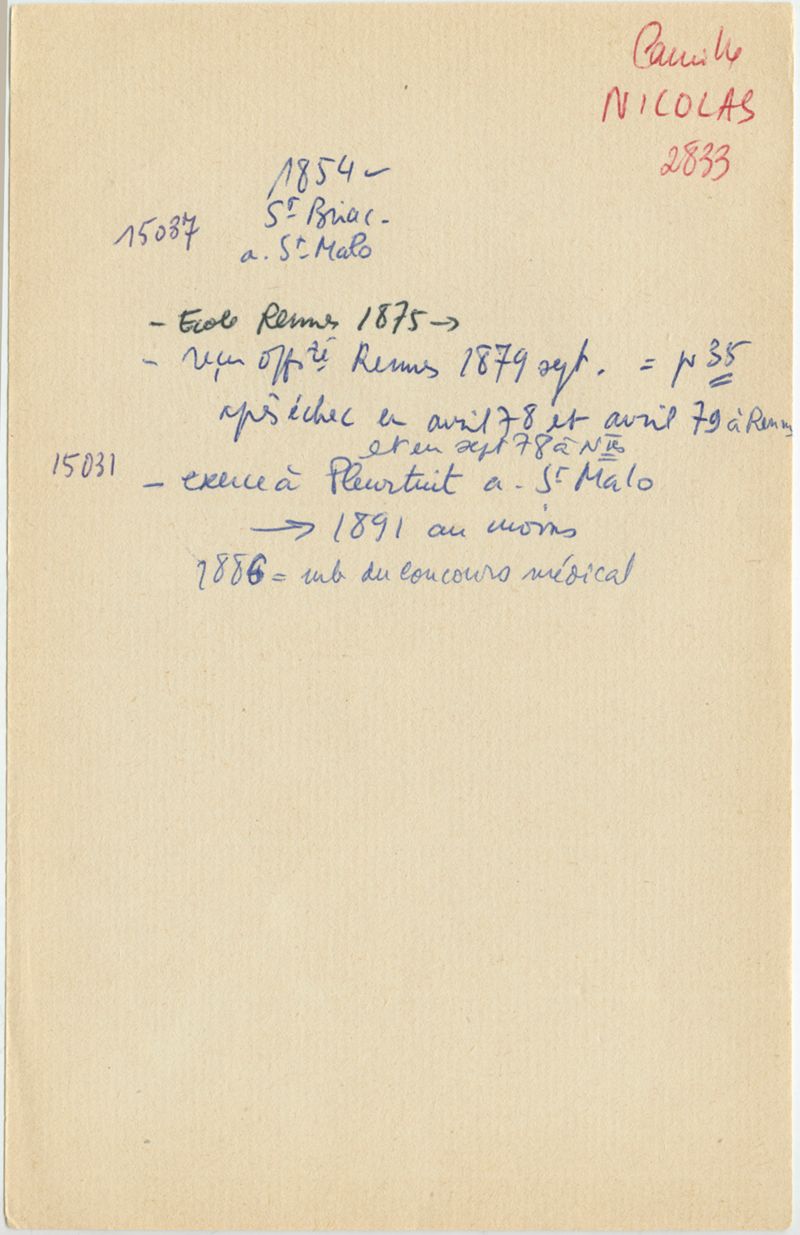 Camille
NICOLAS
2833
1854 -
St Briac -
15037
a. St Malo
- Ecole Rennes 1875 →
- reçu offré Rennes 1879 sept. = pr 35
après échec en avril 78 et avril 79 à Rennes
et en sept 78 à Ntes
15031
- exerce à Pleurtuit a - St Malo
→ 1891 au moins
1886 = mb du concours médical